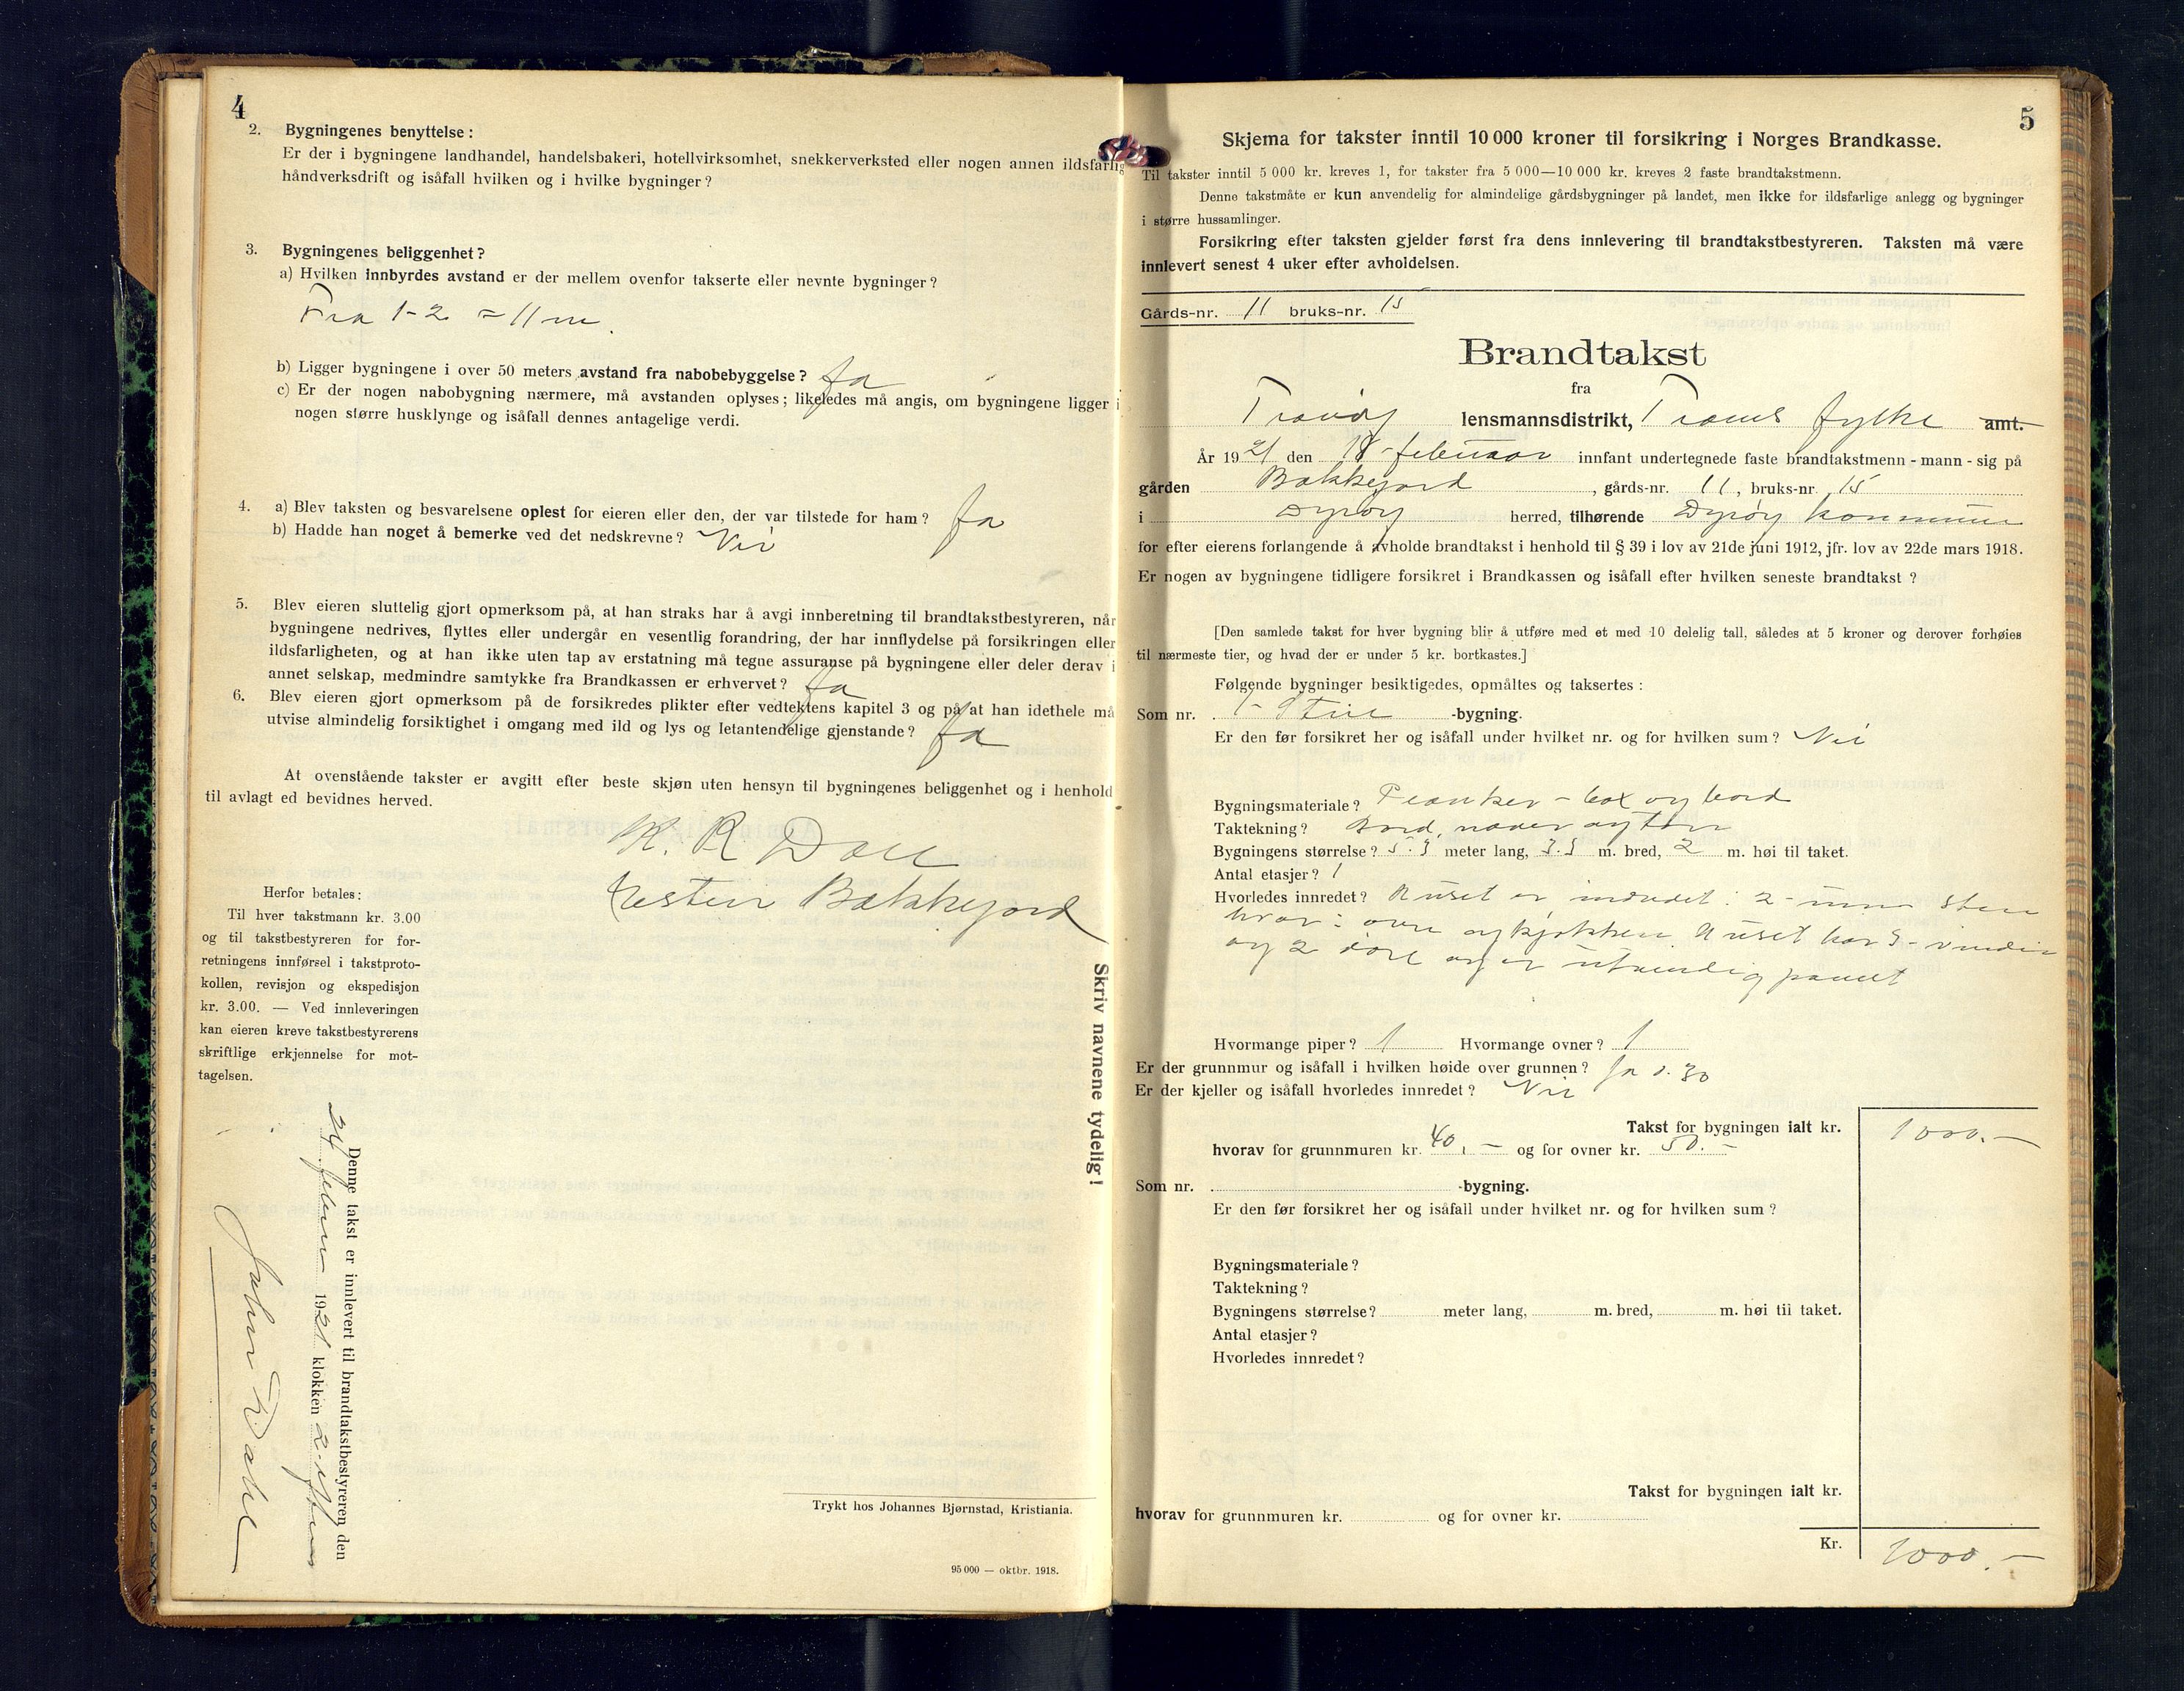 4
2. Bygningenes benyttelse:
Er der i bygningene landhandel, handelsbakeri, hotellvirksomhet, snekkerverksted eller nogen annen ildsfarlig
håndverksdrift og isåfall hvilken og i hvilke bygninger?
3. Bygningenes beliggenhet?
a) Hvilken innbyrdes avstand er der mellem ovenfor takserte eller nevnte bygninger?
Fra 1-2 = 11 m.
b) Ligger bygningene i over 50 meters avstand fra nabobebyggelse? Ja
c) Er der nogen nabobygning nærmere, må avstanden oplyses; likeledes må angis, om bygningene ligger i
nogen større husklynge og isåfall dennes antagelige verdi.
4. a) Blev taksten og besvarelsene oplest for eieren eller den, der var tilstede for ham? Ja
b) Hadde han noget å bemerke ved det nedskrevne? Nei
5. Blev eieren sluttelig gjort opmerksom på, at han straks har å avgi innberetning til brandtakstbestyreren, når
bygningene nedrives, flyttes eller undergår en vesentlig forandring, der har innflydelse på forsikringen eller
ildsfarligheten, og at han ikke uten tap av erstatning må tegne assuranse på bygningene eller deler derav i
annet selskap, medmindre samtykke fra Brandkassen er erhvervet? Ja
6. Blev eieren gjort opmerksom på de forsikredes plikter efter vedtektens kapitel 3 og på at han idethele må
utvise almindelig forsiktighet i omgang med ild og lys og letantendelige gjenstande? Ja
At ovenstående takster er avgitt efter beste skjøn uten hensyn til bygningenes beliggenhet og i henhold
til avlagt ed bevidnes herved.
K. R. Dall
Bakkejord
Herfor betales:
Til hver takstmann kr. 3.00
og til takstbestyreren for for-
retningens innførsel i takstproto-
kollen, revisjon og ekspedisjon
kr. 3.00. — Ved innleveringen
kan eieren kreve takstbestyrerens
skriftlige erkjennelse for mot-
tagelsen.
Skriv navnene tydelig!
Denne takst er innlevert til brandtakstbestyreren den
24 1921 klokken 2
Johan Dahl
Trykt hos Johannes Bjørnstad, Kristiania.
95 000 — oktbr. 1918.
5
Skjema for takster inntil 10 000 kroner til forsikring i Norges Brandkasse.
Til takster inntil 5 000 kr. kreves 1, for takster fra 5 000—10 000 kr. kreves 2 faste brandtakstmenn.
Denne takstmåte er kun anvendelig for almindelige gårdsbygninger på landet, men ikke for ildsfarlige anlegg og bygninger
i større hussamlinger.
Forsikring efter taksten gjelder først fra dens innlevering til brandtakstbestyreren. Taksten må være
innlevert senest 4 uker efter avholdelsen.
Gårds-nr. 11 bruks-nr. 15
Brandtakst
fra
Tranøy lensmannsdistrikt, Troms fylke amt.
År 1921 den 18 februar innfant undertegnede faste brandtakstmenn - mann - sig på
gården Bakkejord, gårds-nr. 11, bruks-nr. 15
i Dyrøy herred, tilhørende Dyrøy kommune
for efter eierens forlangende å avholde brandtakst i henhold til § 39 i lov av 21de juni 1912, jfr. lov av 22de mars 1918.
Er nogen av bygningene tidligere forsikret i Brandkassen og isåfall efter hvilken seneste brandtakst?
[Den samlede takst for hver bygning blir å utføre med et med 10 delelig tall, således at 5 kroner og derover forhøies
til nærmeste tier, og hvad der er under 5 kr. bortkastes.]
Følgende bygninger besiktigedes, opmåltes og taksertes:
Som nr. 1- Stue -bygning.
Er den før forsikret her og isåfall under hvilket nr. og for hvilken sum? Nei
Bygningsmateriale? Planker - og bord
Taktekning? Bord, never og torv
Bygningens størrelse? 5.3 meter lang, 3.5 m. bred, 2 m. høi til taket.
Antal etasjer? 1
Hvorledes innredet? Huset er indredet: 2
og kjøkken. Huset har 3
og 2 døre og er utvendig panelt
Hvormange piper? 1 Hvormange ovner? 1
Er der grunnmur og isåfall i hvilken høide over grunnen? Ja 0.30
Er der kjeller og isåfall hvorledes innredet? Nei
Takst for bygningen ialt kr. 1000.—
hvorav for grunnmuren kr. 40,— og for ovner kr. 50.—
Som nr. -bygning.
Er den før forsikret her og isåfall under hvilket nr. og for hvilken sum?
Bygningsmateriale?
Taktekning?
Bygningens størrelse? meter lang, m. bred, m. høi til taket.
Antal etasjer?
Hvorledes innredet?
Takst for bygningen ialt kr.
hvorav for grunnmuren kr. og for ovner kr.
Kr. 1000.—